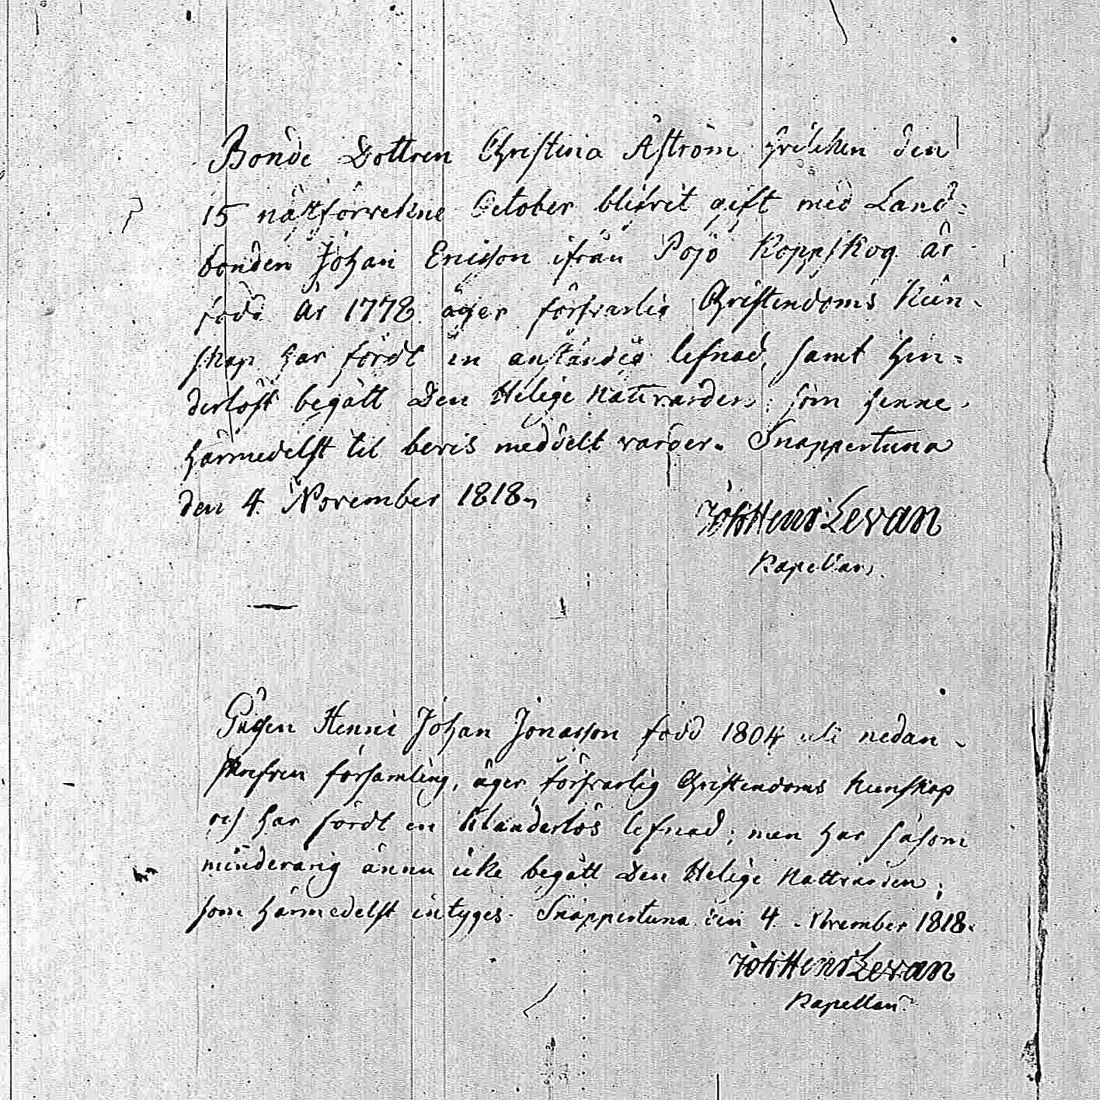 Bonde Dottren Christina Åström hvilcken den
15 nästförvekne October blifvit gift med Land=
bonden Johan Ericsson ifrån Pojo Koppskog är
född År 1778 äger försvarlig Christendoms Kun=
skap har fördt en anständig lefnad, samt hin=
derlöst begått Den Helige Nattvarden; som henne
härmedelst til bevis meddelt varder. Snappertuna
den 4 November 1818.
Joh Henr Levan
Kapellan.
Gåssen Henric Johan Jonasson född 1804 uti nedan=
skrefven församling, äger försvarlig Christendoms Kunskap
och har fördt en klanderlös lefnad; men har såsom
minderårig ännu icke begått Den Helige Nattvarden;
som härmedelst intyges. Snappertuna den 4 November 1818.
Joh Henr Levan
Kapellan.